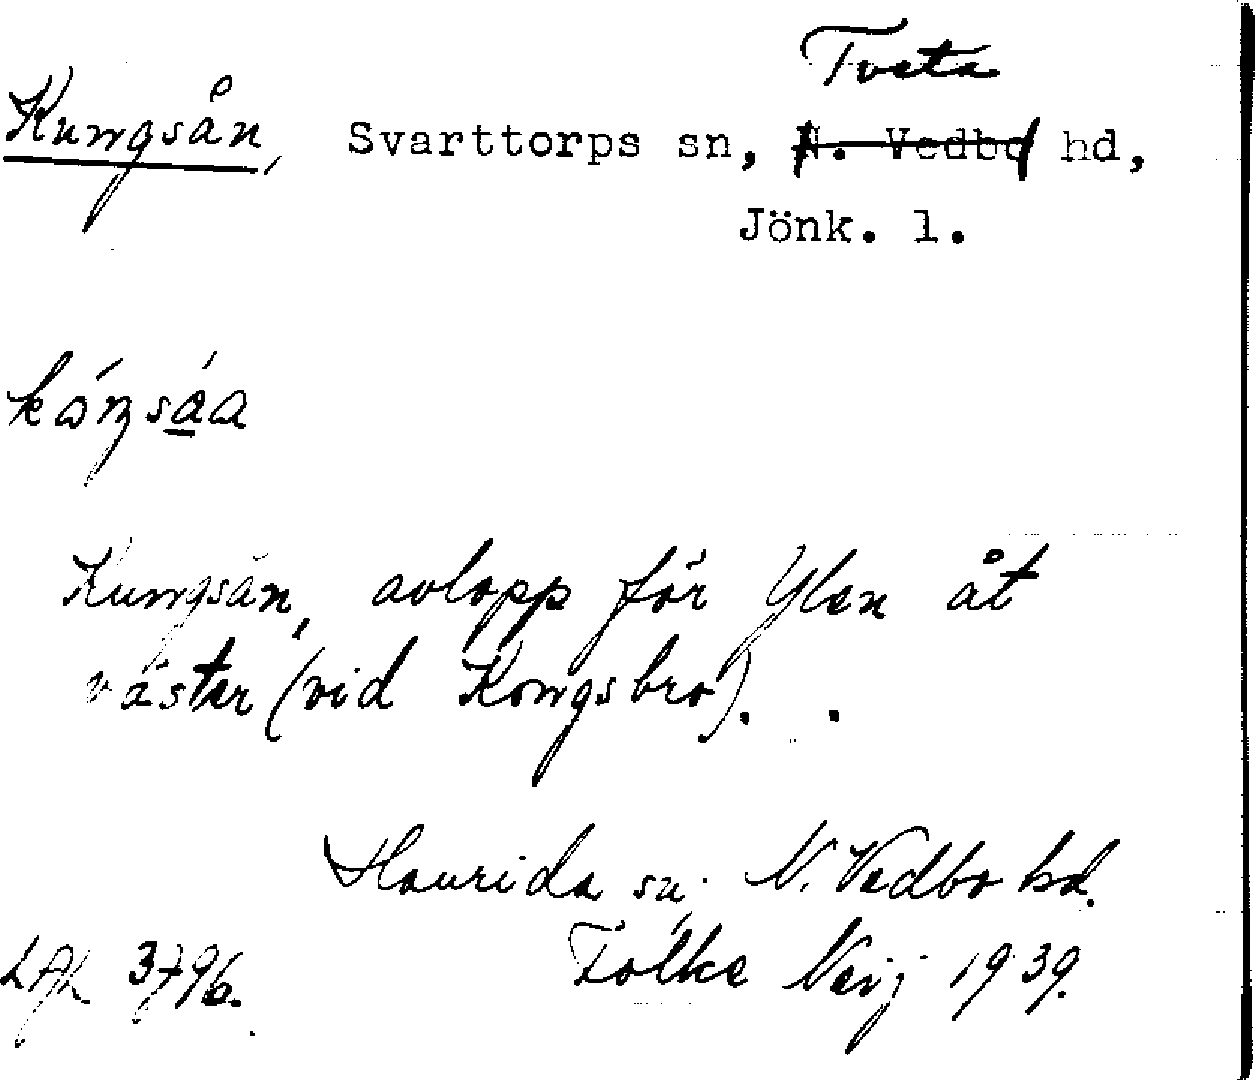 Tveta
Kungsån, Svarttorps sn, N. Vedbo hd,
Jönk. l.
kóŋsáa
Kungsån, avlopp för Ylen åt
väster (vid Kongsbro).
Haurida sn. N. Vedbo hd.
LAL 3796. Folke Neij 1939.